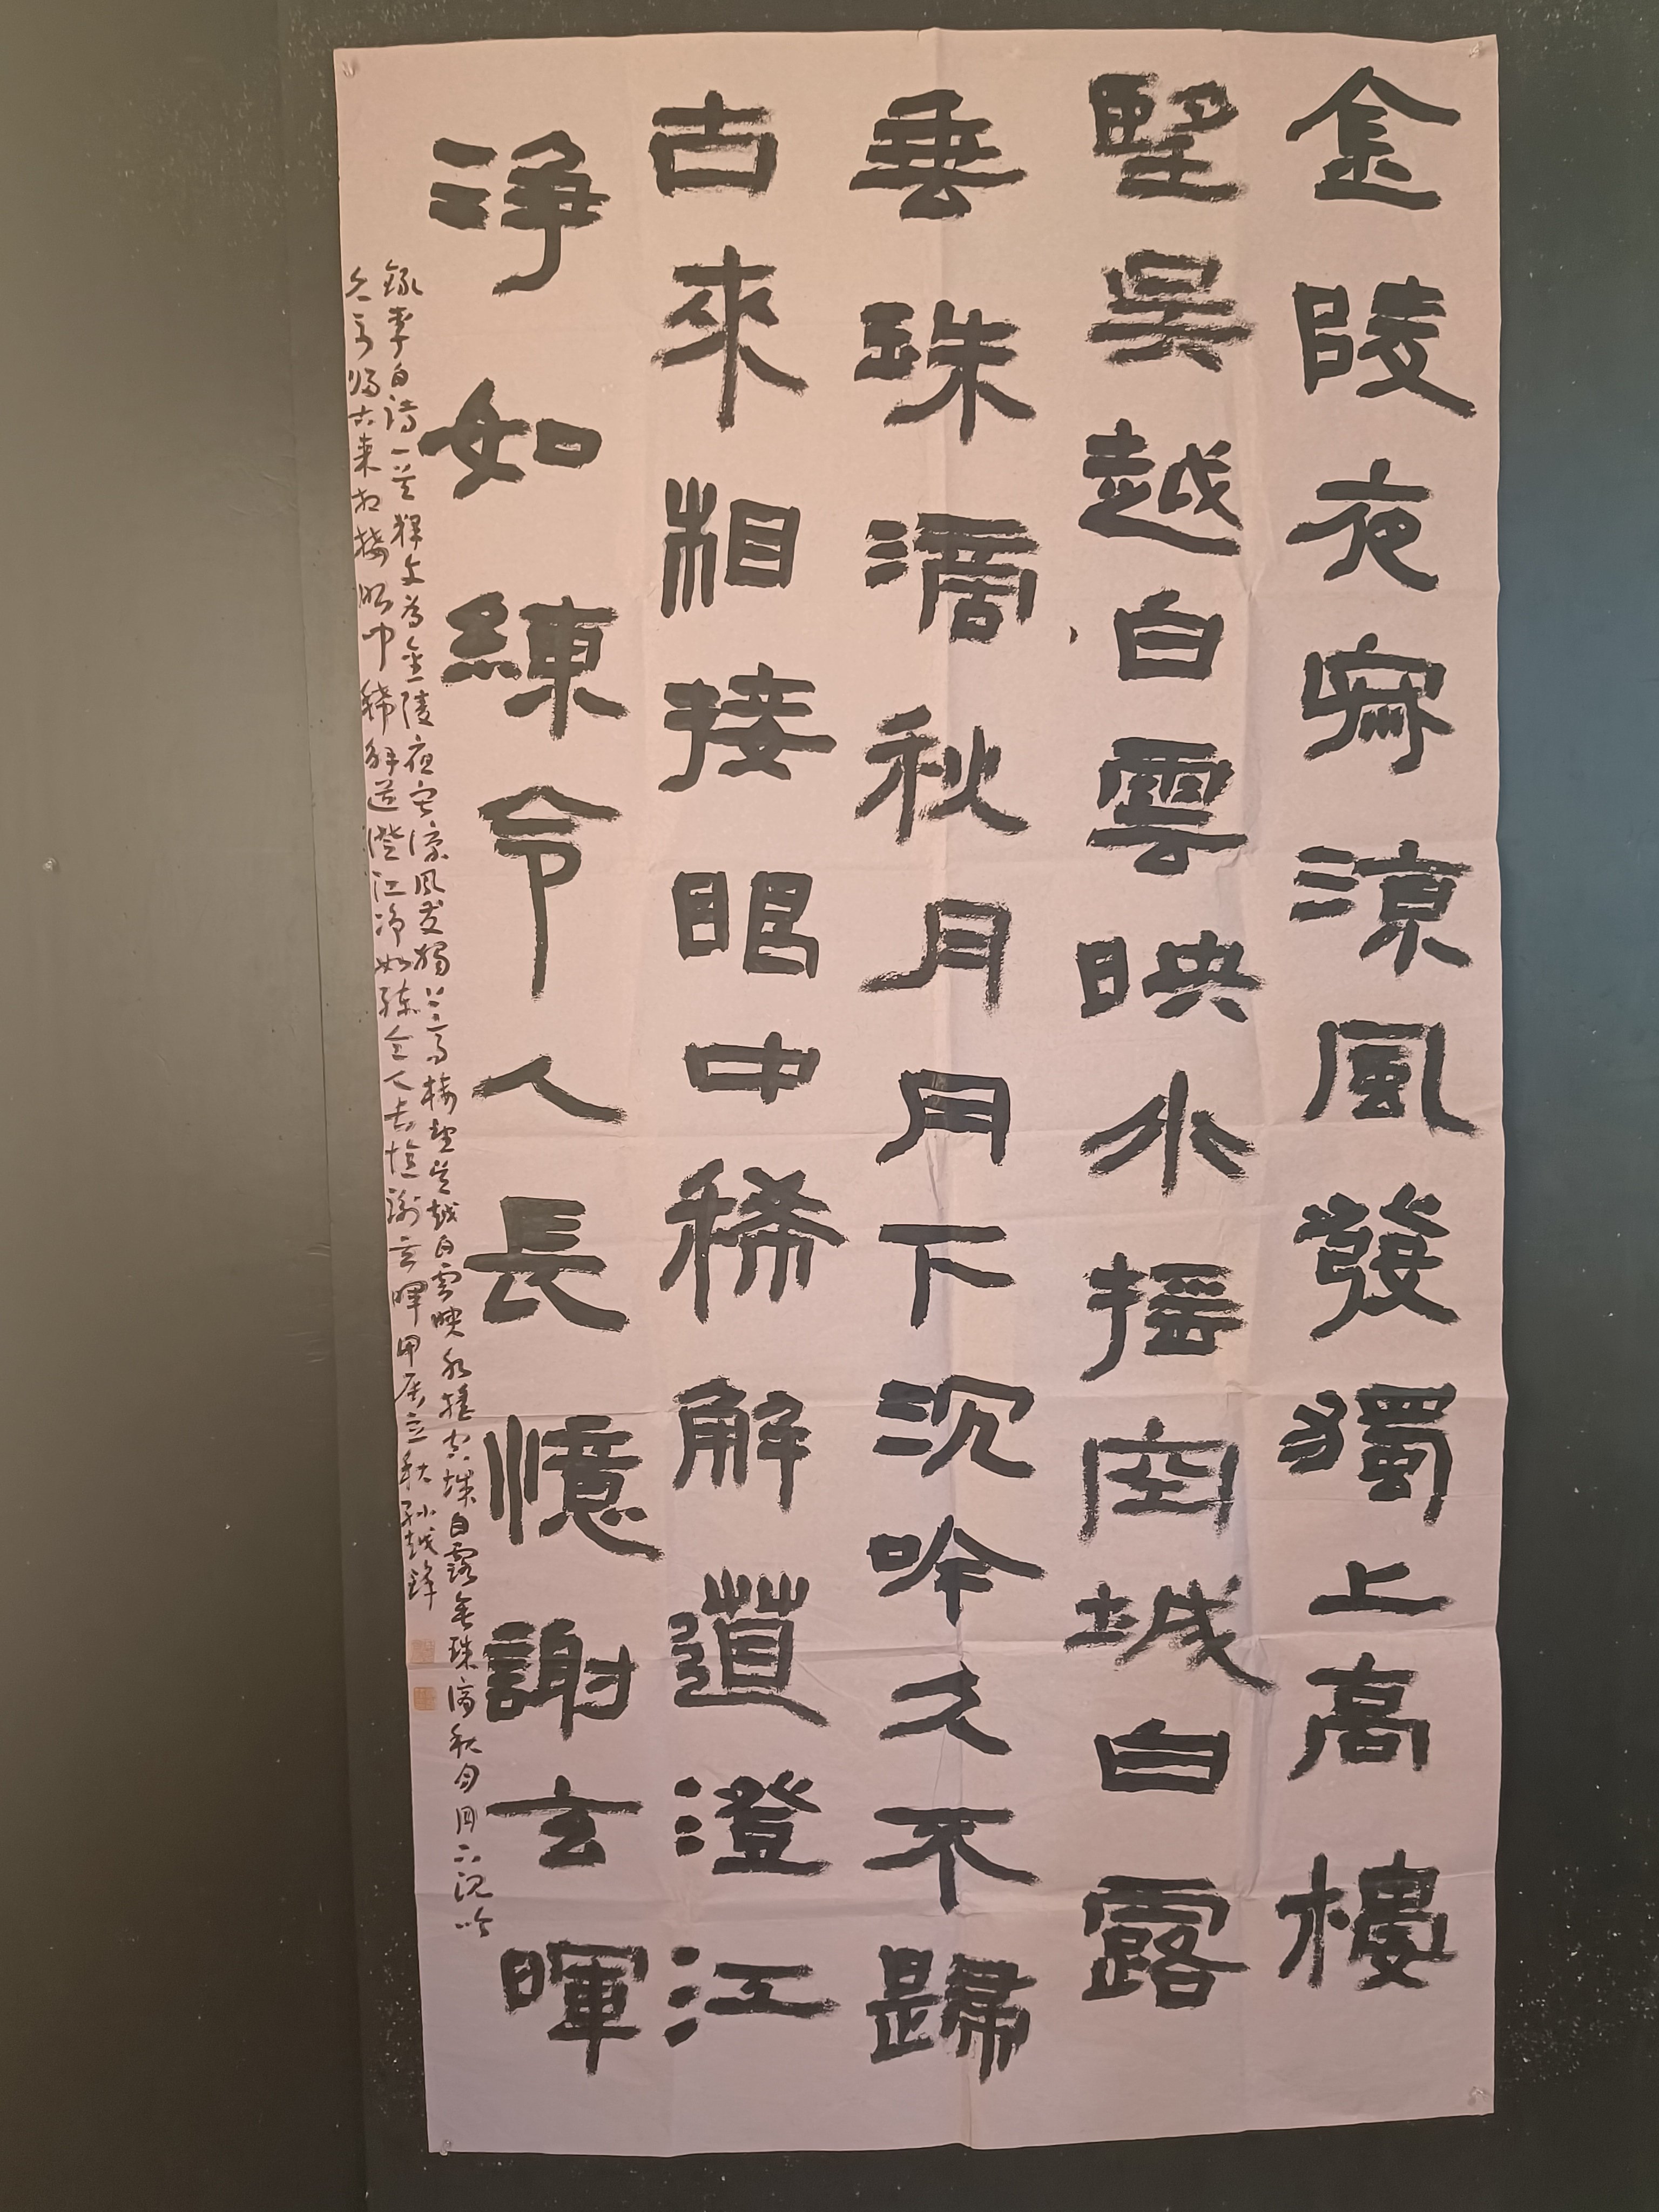 金陵夜寂涼風發獨上高樓
望吳越白雲映水摇空城白露
垂珠滴秋月月下沉吟久不歸
古來相接眼中稀解道澄江
淨如練令人長憶謝玄暉
錄李白詩一首釋文為金陵夜寂涼風發獨上高樓望吳越白雲映水摇空城白露垂珠滴秋月月下沉吟
久不歸古來相接眼中稀解道澄江淨如練令人長憶謝玄暉甲辰立秋孫越鋒